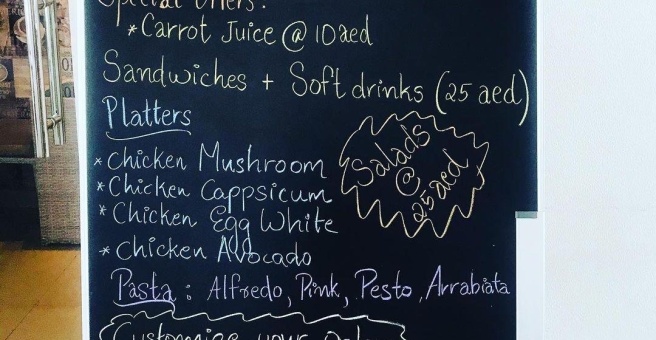 Special Offers:
*Carrot Juice @ 10aed
Sandwiches + Soft drinks (25 aed)
Platters
*Chicken Mushroom
*Chicken Cappsicum
*Chicken Egg White
*Chicken Avocado
Salads
@
25aed
Pasta: Alfredo, Pink, Pesto, Arrabiata
Customise your